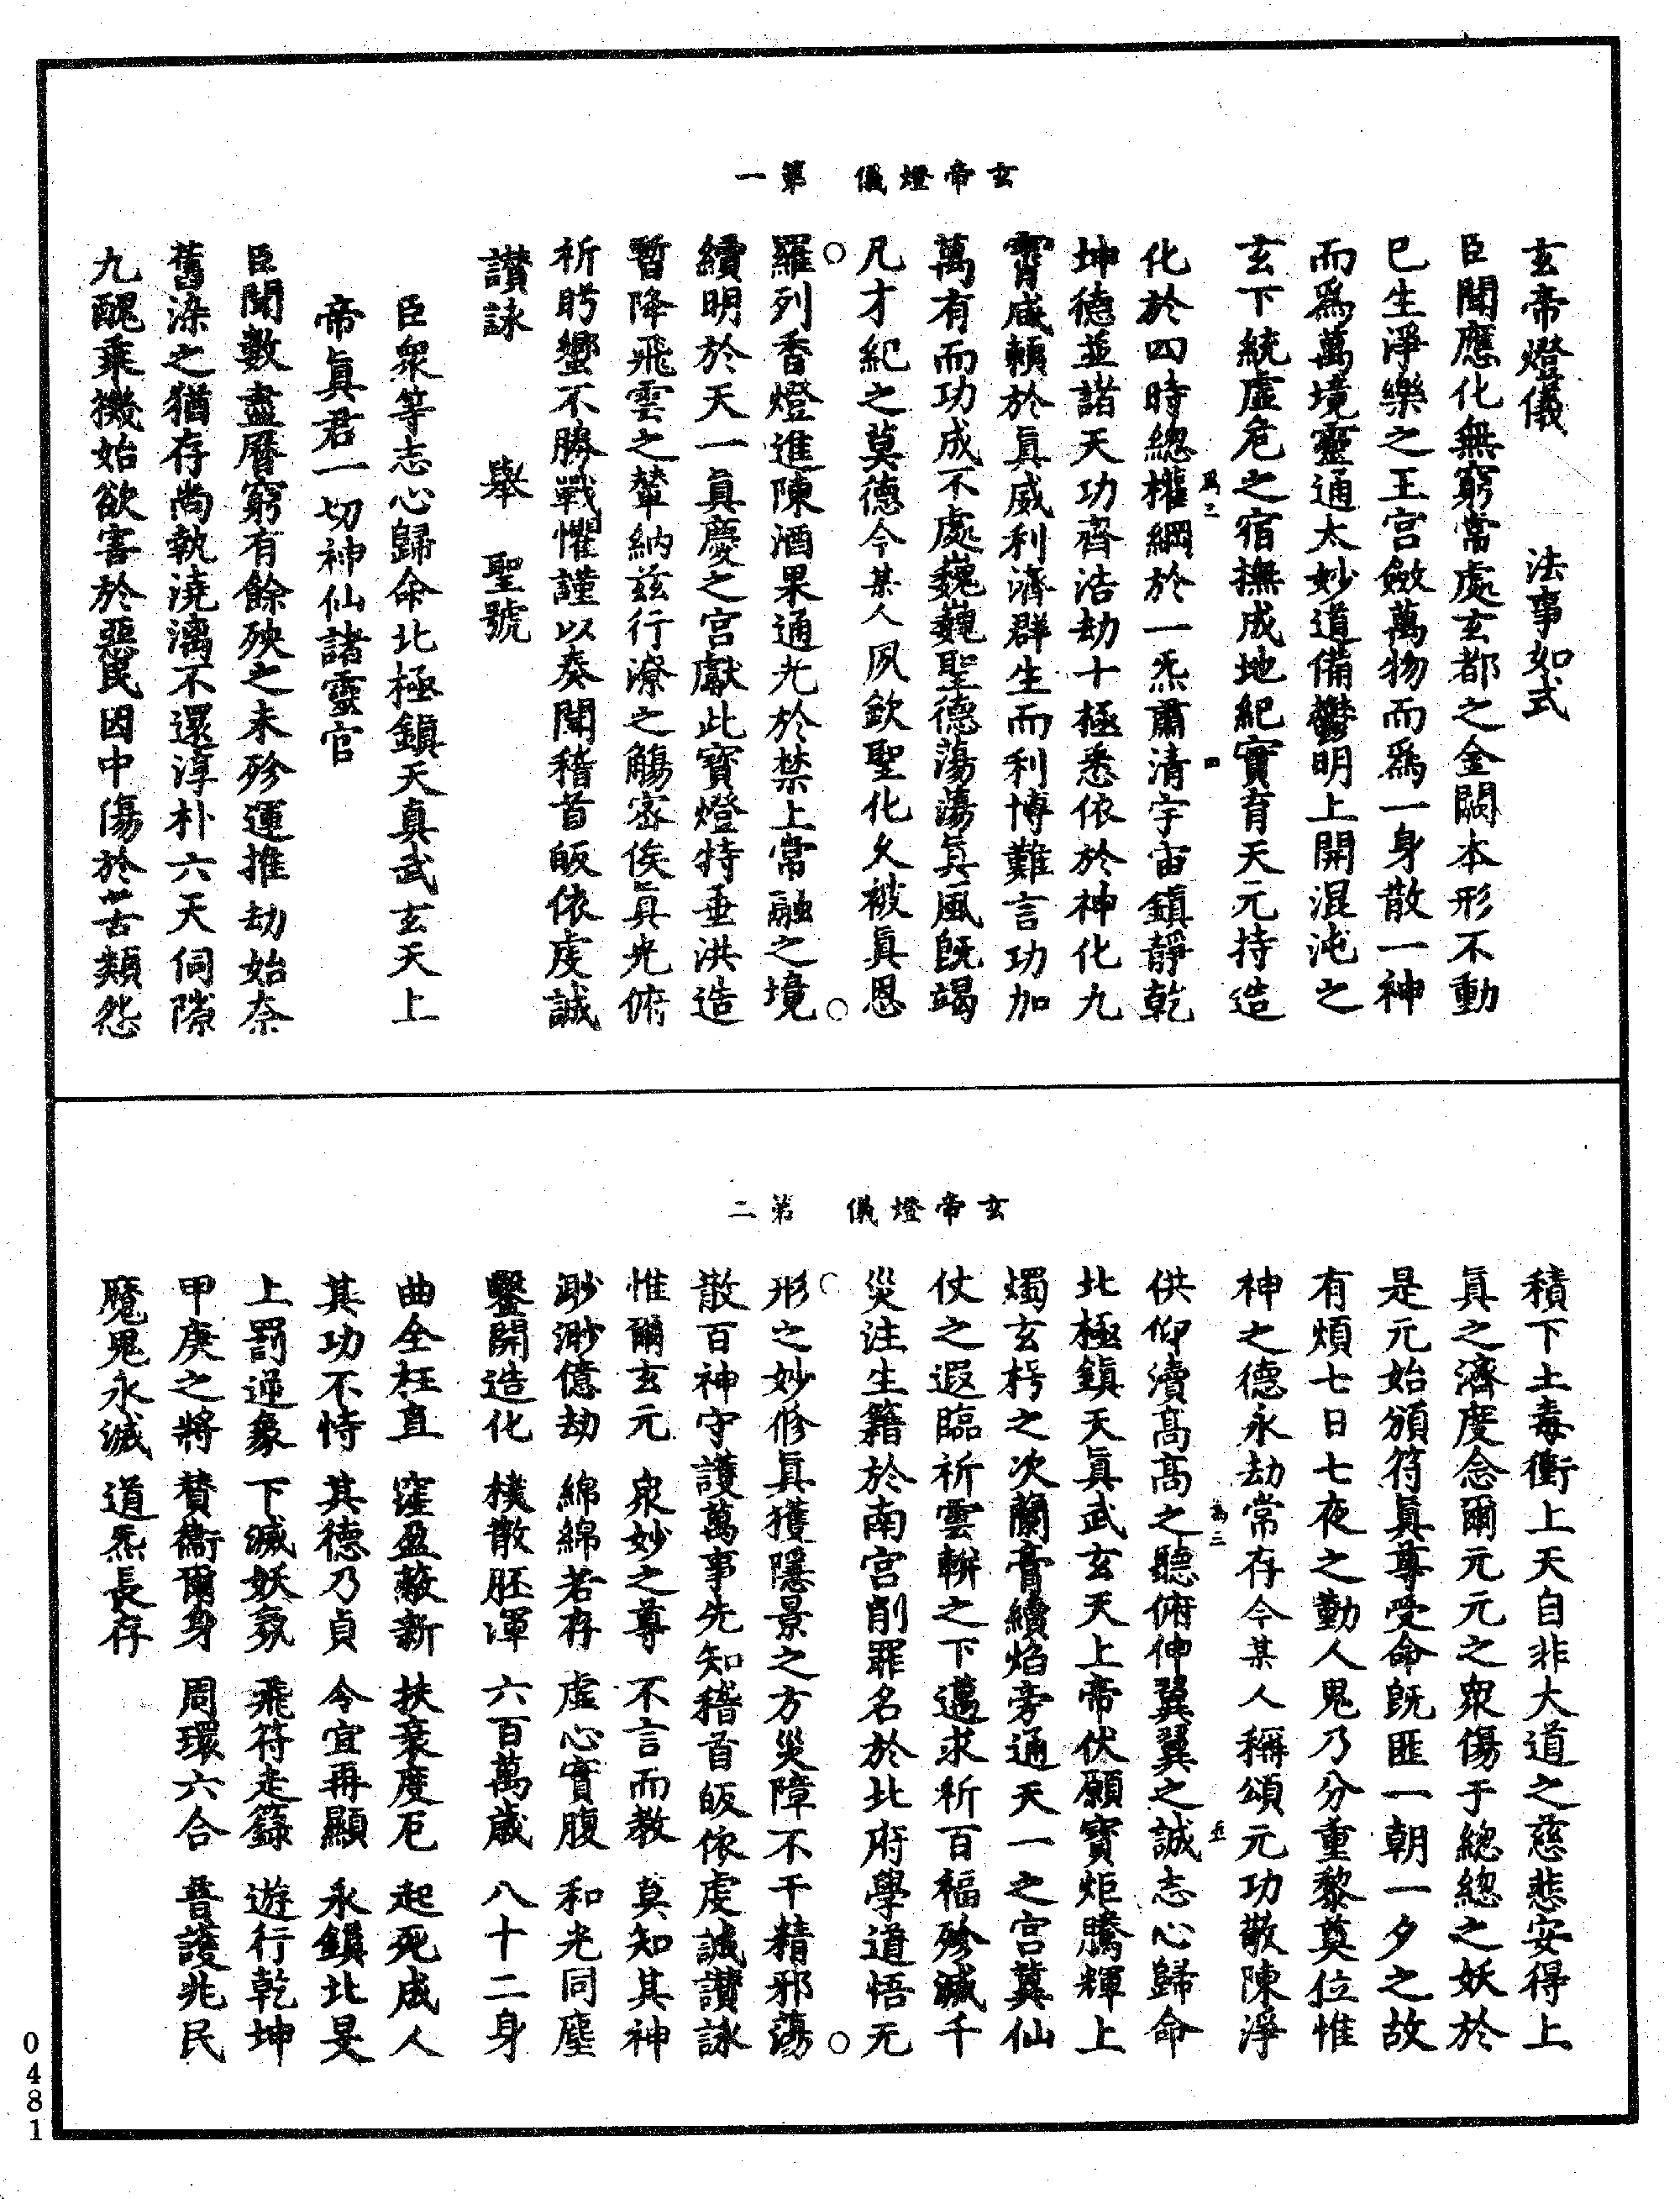 玄帝燈儀　第一
玄帝燈儀　　法事如式
臣聞應化無窮常處玄都之金闕本形不動
已生淨樂之王宮斂萬物而爲一身散一神
而爲萬境靈通太妙道備鬱明上開混沌之
玄下統虛危之宿撫成地紀寶育天元持造
化於四時總權綱於一炁肅清宇宙鎮靜乾
坤德並諸天功齊浩劫十極悉依於神化九
霄咸賴於眞威利濟群生而利博難言功加
萬有而功成不處巍巍聖德蕩蕩眞風旣竭
凡才紀之莫德今某人夙欽聖化久被眞恩
羅列香燈進陳酒果通光於禁上常融之境
續明於天一眞慶之宮獻此寶燈特垂洪造
暫降飛雲之輦納茲行潦之觴密俟眞光俯
祈肹蠁不勝戰懼謹以奏聞稽首皈依虔誠
讚詠　　舉　聖號
臣衆等志心歸命北極鎮天真武玄天上
帝眞君一切神仙諸靈官
臣聞數盡曆窮有餘殃之未殄運推劫始奈
舊染之猶存尚執澆漓不還淳朴六天伺隙
九醜乘機始欲害於惡民因中傷於善類怨
玄帝燈儀　第二
積下土毒衝上天自非大道之慈悲安得上
眞之濟度念爾元元之衆傷于總總之妖於
是元始頒符眞尊受命旣匪一朝一夕之故
有煩七日七夜之勤人鬼乃分重黎奠位惟
神之德永劫常存今某人稱頌元功敬陳淨
供仰瀆高高之聽俯伸翼翼之誠志心歸命
北極鎮天眞武玄天上帝伏願寶炬騰輝上
燭玄枵之次蘭膏續焰旁通天一之宮冀仙
仗之遐臨祈雲軿之下邁求祈百福殄滅千
災注生籍於南宮削罪名於北府學道悟无
形之妙修眞獲隱景之方災障不干精邪蕩
散百神守護萬事先知稽首皈依虔誠讚詠
惟爾玄元　衆妙之尊　不言而教　莫知其神
渺渺億劫　綿綿若存　虛心實腹　和光同塵
鑿開造化　樸散胚渾　六百萬歲　八十二身
曲全枉直　窪盈敝新　扶衰度厄　起死成人
其功不恃　其德乃貞　今宜再顯　永鎮北旻
上罰逆象　下滅妖氛　飛符走籙　遊行乾坤
甲庚之將　贊衞爾身　周環六合　普護兆民
魔鬼永滅　道炁長存
0481